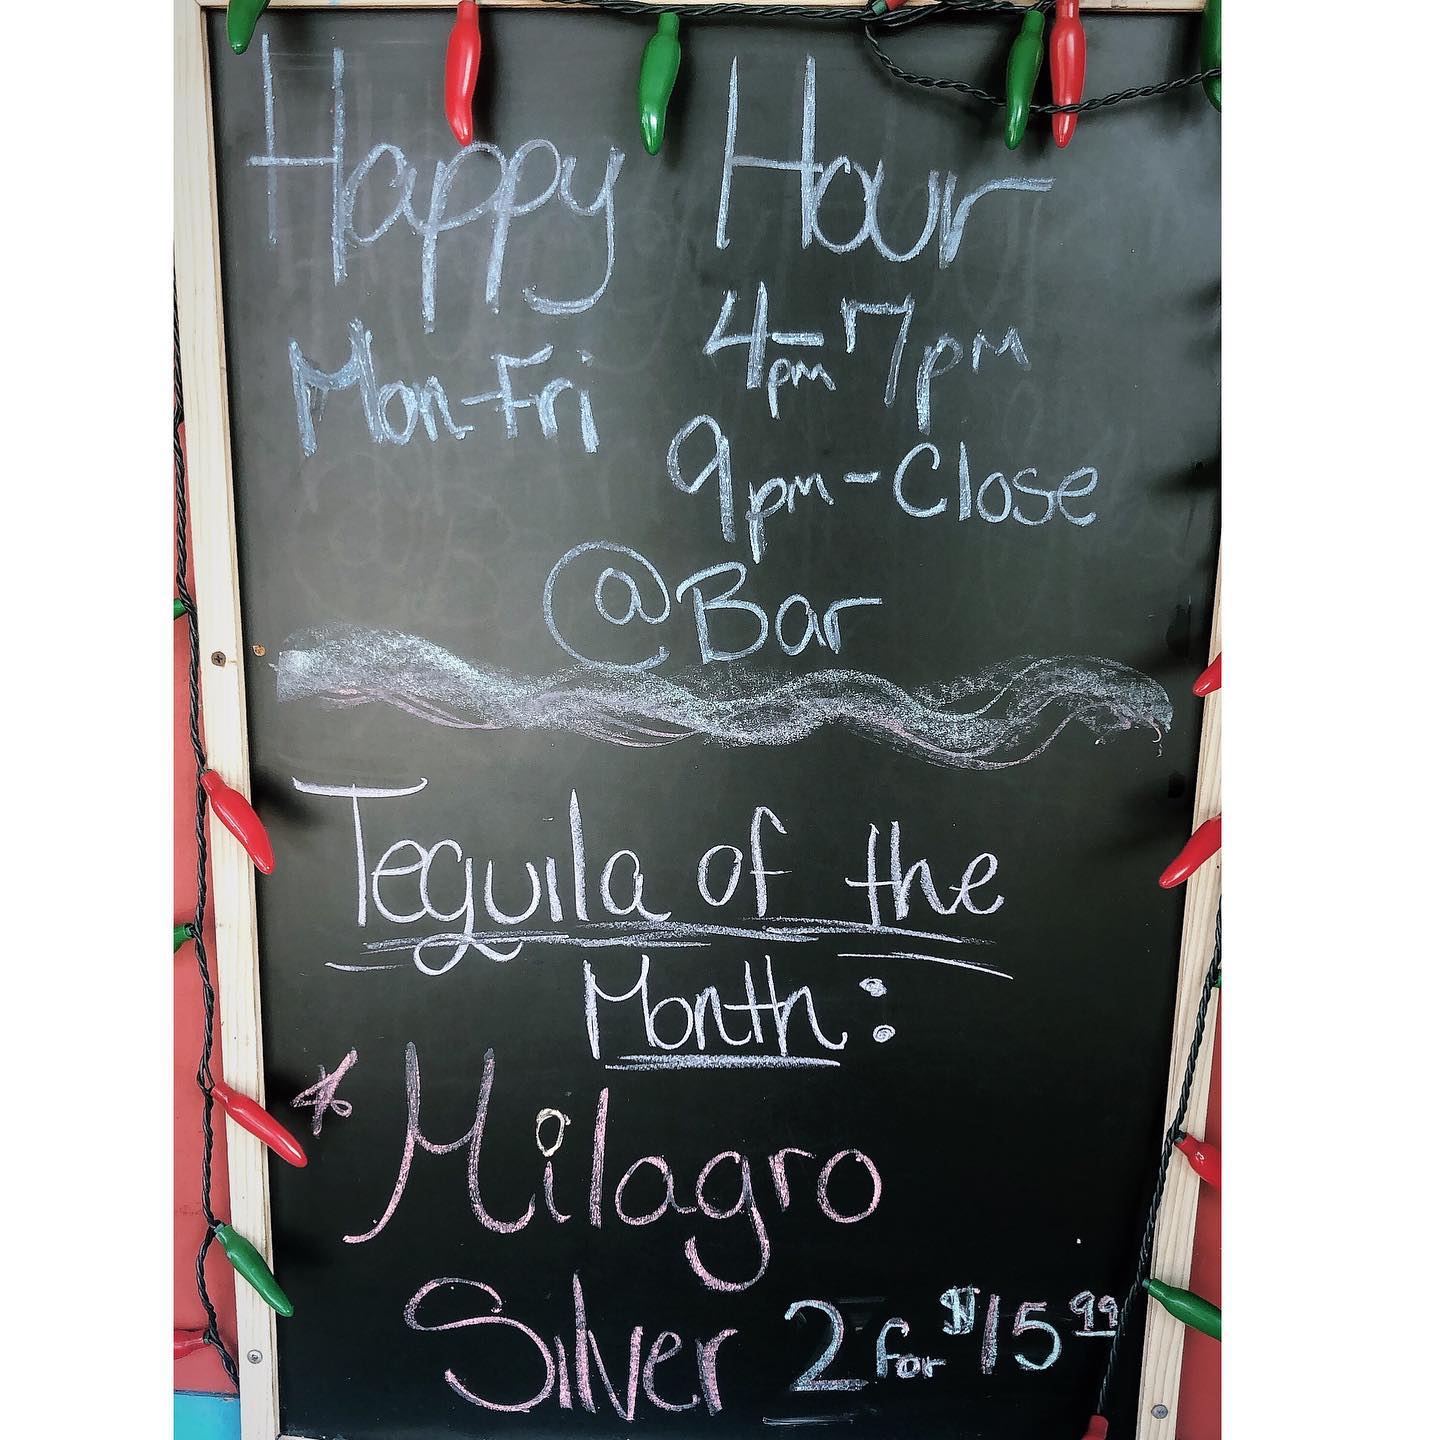 Happy Hour
Mon-Fri 4pm-7pm
9pm-Close
@Bar
Tequila of the
Month:
* Milagro
Silver 2 for $15 99